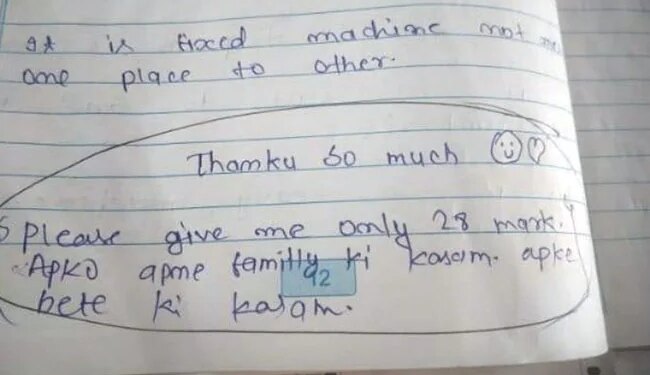 It is fixed machine not
one place to other.
Thanku so much
Please give me only 28 mark.
Apko apne familly ki kasam. apke
92
bete ki kasam.